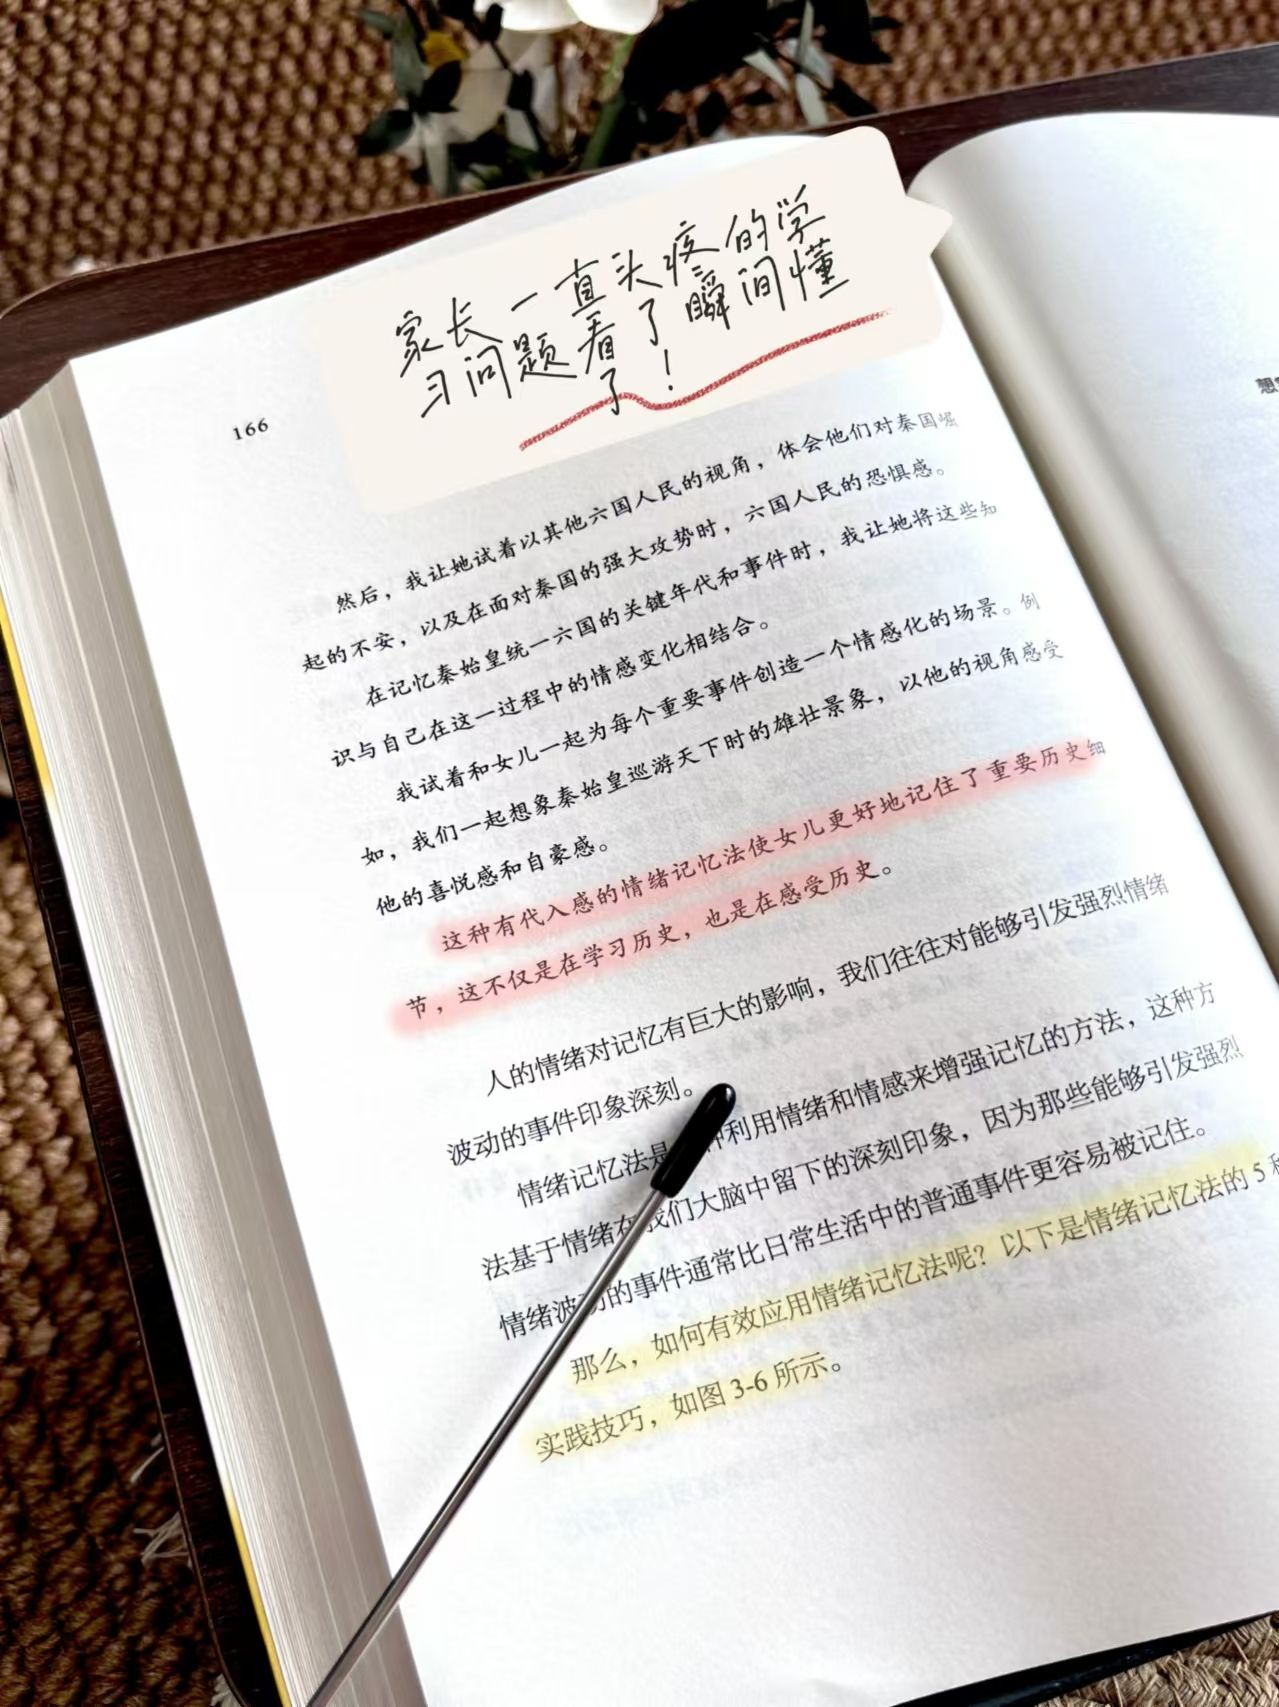 家长一直头疼的学
习问题看了瞬间懂
了！
166
然后，我让她试着以其他六国人民的视角，体会他们对秦国崛
起的不安，以及在面对秦国的强大攻势时，六国人民的恐惧感。
在记忆秦始皇统一六国的关键年代和事件时，我让她将这些知
识与自己在这一过程中的情感变化相结合。
我试着和女儿一起为每个重要事件创造一个情感化的场景。例
如，我们一起想象秦始皇巡游天下时的雄壮景象，以他的视角感受
他的喜悦感和自豪感。
这种有代入感的情绪记忆法使女儿更好地记住了重要历史细
节，这不仅是在学习历史，也是在感受历史。
人的情绪对记忆有巨大的影响，我们往往对能够引发强烈情绪
波动的事件印象深刻。
情绪记忆法是一种利用情绪和情感来增强记忆的方法，这种方
法基于情绪在我们大脑中留下的深刻印象，因为那些能够引发强烈
情绪波动的事件通常比日常生活中的普通事件更容易被记住。
那么，如何有效应用情绪记忆法呢？以下是情绪记忆法的5种
实践技巧，如图3-6所示。